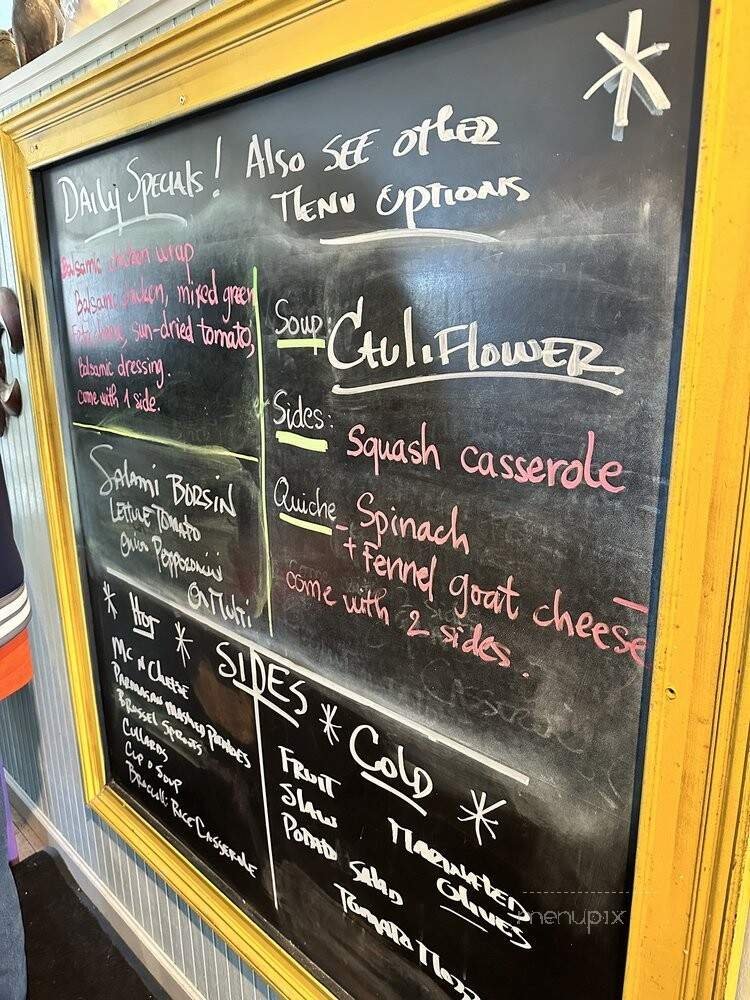 Daily Specials! Also See other
Menu Options
Balsamic chicken wrap
Balsamic chicken, mixed green
sun-dried tomato,
balsamic dressing.
come with 1 side.
Salami Borsin
Lettuce Tomato
Onion Pepperoncini
On Multi
Soup: Cauliflower
Sides: Squash casserole
Quiche - Spinach
+ Fennel goat cheese
come with 2 sides.
SIDES
* Hot *
Mc N Cheese
Parmagan Mashed Potatoes
Brussel Sprouts
Cullards
Cup o Soup
Broccoli Rice Casserole
* Cold *
Fruit
Slaw
Potato Salad
Marinated
Olives
Tomato Mozz
menupix